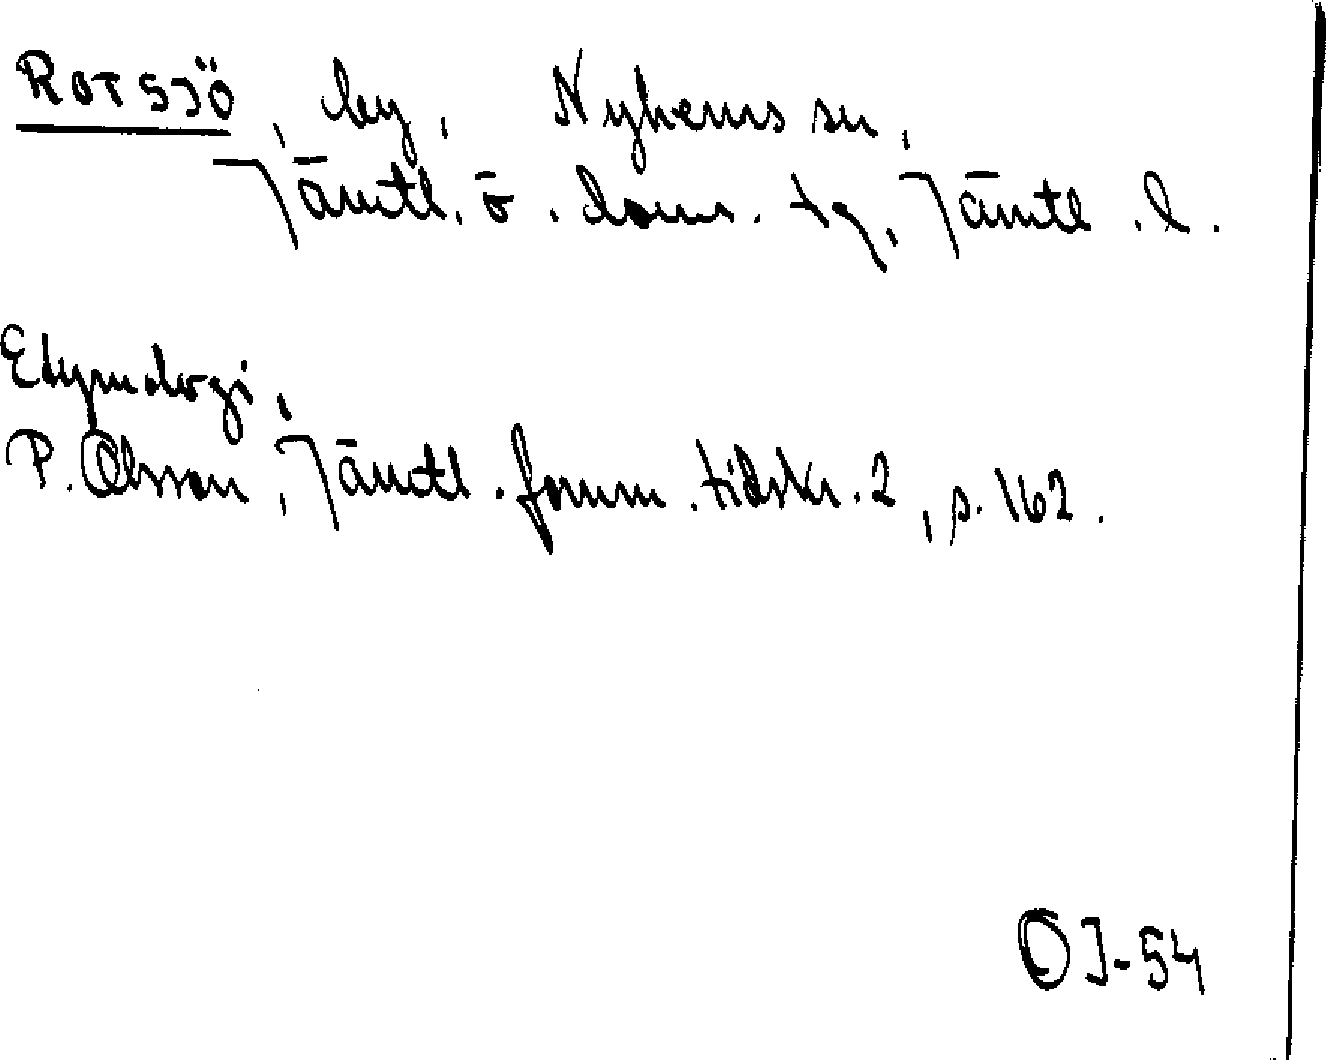 ROTSJÖ, by, Nyhems sn,
Jämtl. ö. doms. tg, Jämtl. l.
Etymologi,
P. Olsson, Jämtl. fornm. tidskr. 2, s. 162.
OJ-54